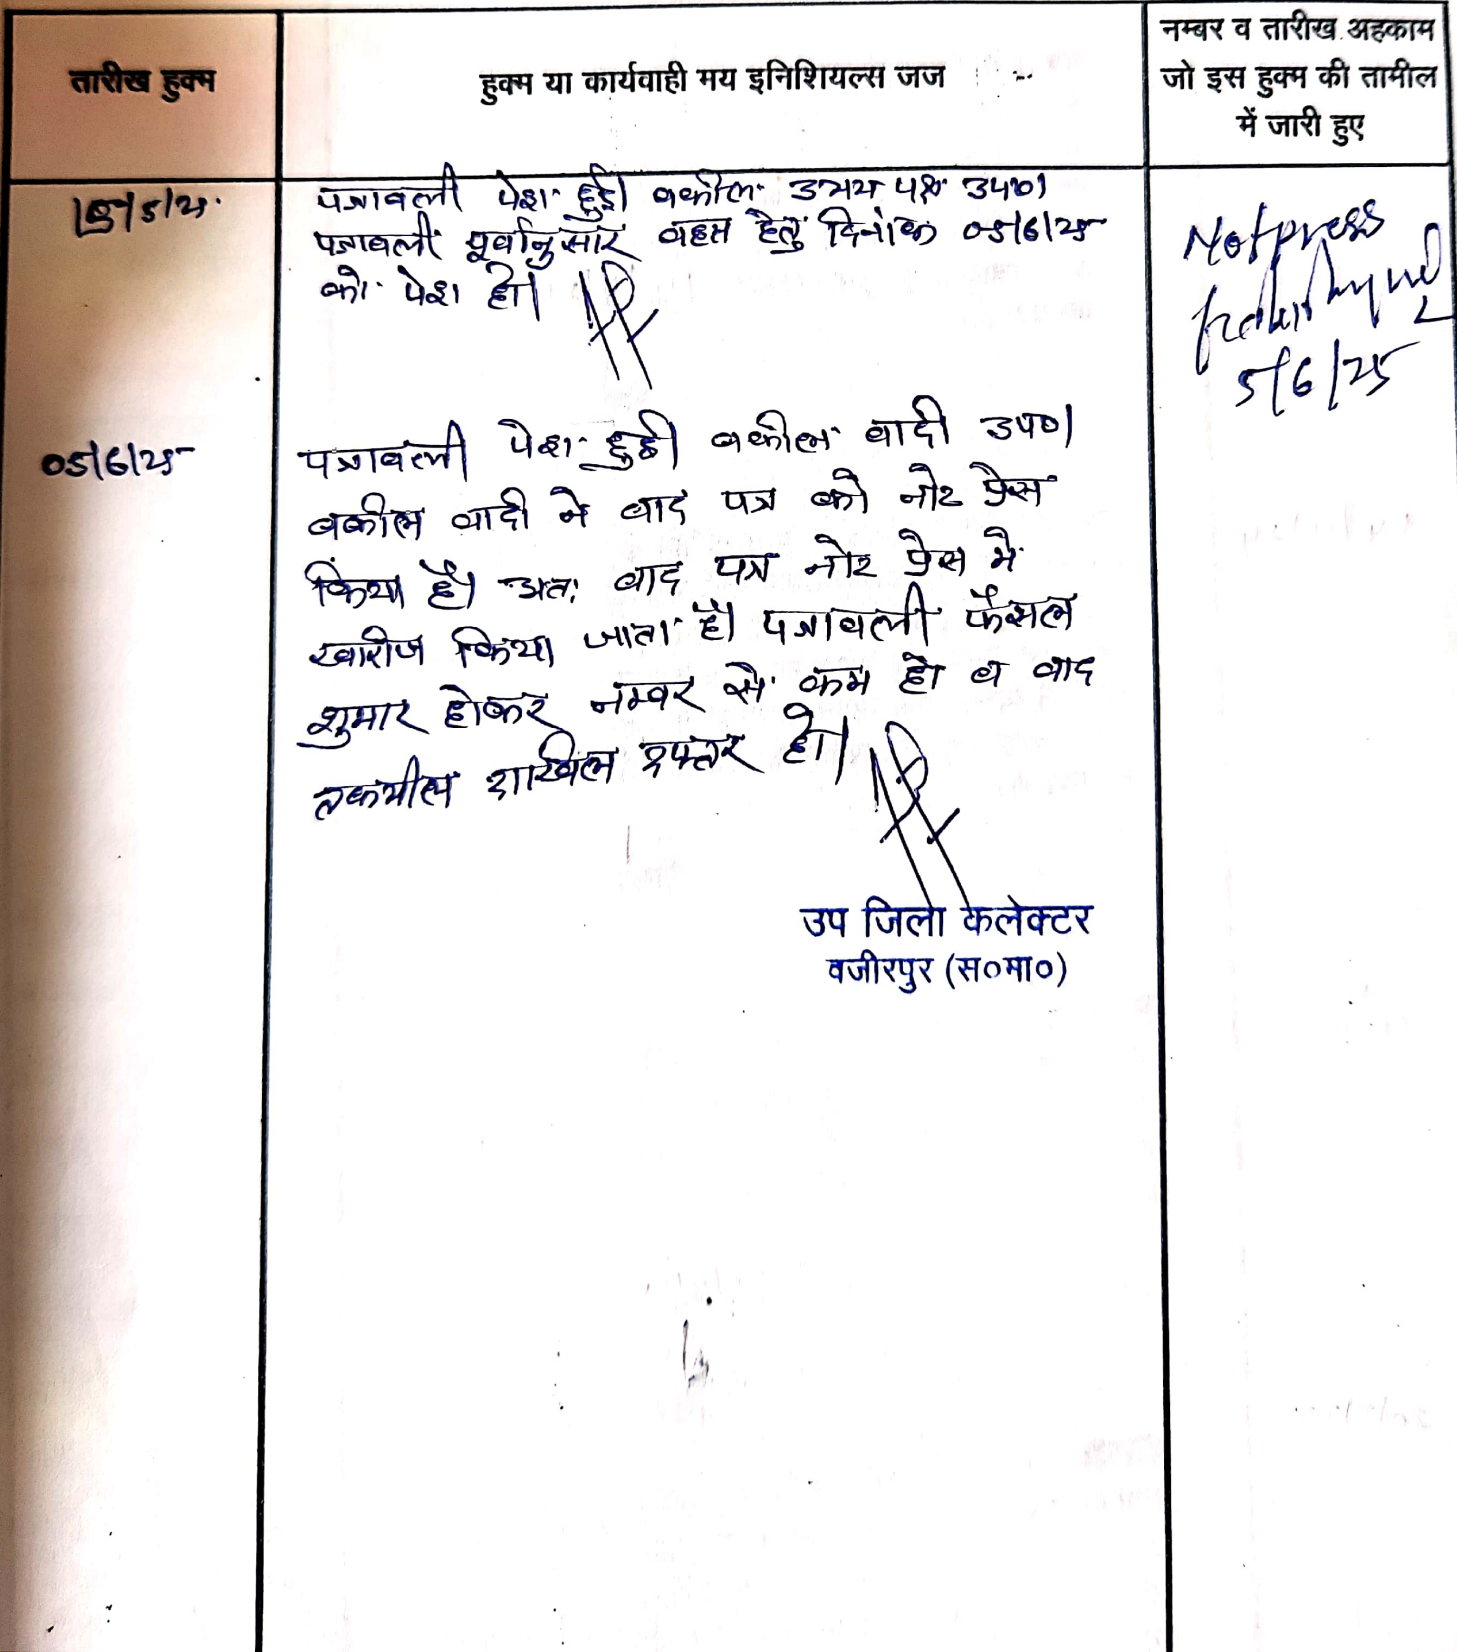 तारीख हुक्म
हुक्म या कार्यवाही मय इनिशियल्स जज
नम्बर व तारीख अहकाम
जो इस हुक्म की तामील
में जारी हुए
पत्रावली पेश हुई। वकील उभय पक्ष उप०।
पत्रावली पूर्वानुसार बहस हेतु दिनांक 05/6/25
को पेश हो।
Not press
5/6/25
05/6/25
पत्रावली पेश हुई। वकील वादी उप०।
वकील वादी ने वाद पत्र को नोट प्रेस
किया है। अतः वाद पत्र नोट प्रेस में
खारीज किया जाता है। पत्रावली फैसल
शुमार होकर नम्बर से कम हो व वाद
तकमील दाखिल दफ्तर हो।
उप जिला कलेक्टर
वजीरपुर (स०मा०)